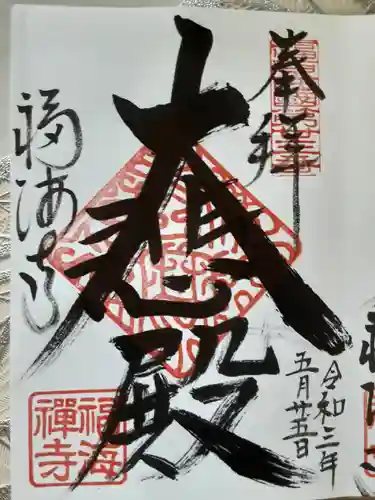 奉拝
大悲殿
福海寺
令和三年
五月廿五日
福海
禅寺